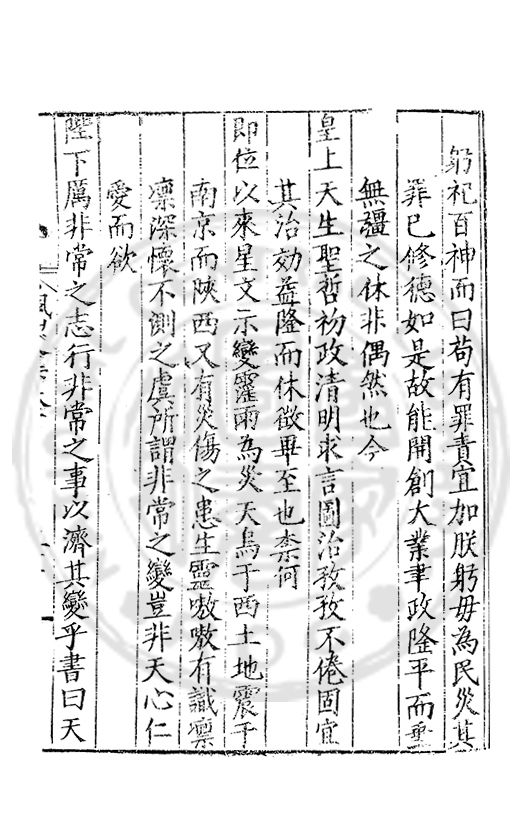 躬祀百神而曰苟有罪責宜加朕躬毋為民災其
罪已修德如是故能開創大業聿政隆平而垂
無疆之休非偶然也今
皇上天生聖哲初政清明求言圖治孜孜不倦固宜
其治効益隆而休徵畢至也柰何
即位以來星文示變霪雨為災天鳥于西土地震于
南京而陝西又有災傷之患生靈嗷嗷有識凛
凛深懷不測之虞所謂非常之變豈非天心仁
愛而欲
陛下厲非常之志行非常之事以濟其變乎書曰天